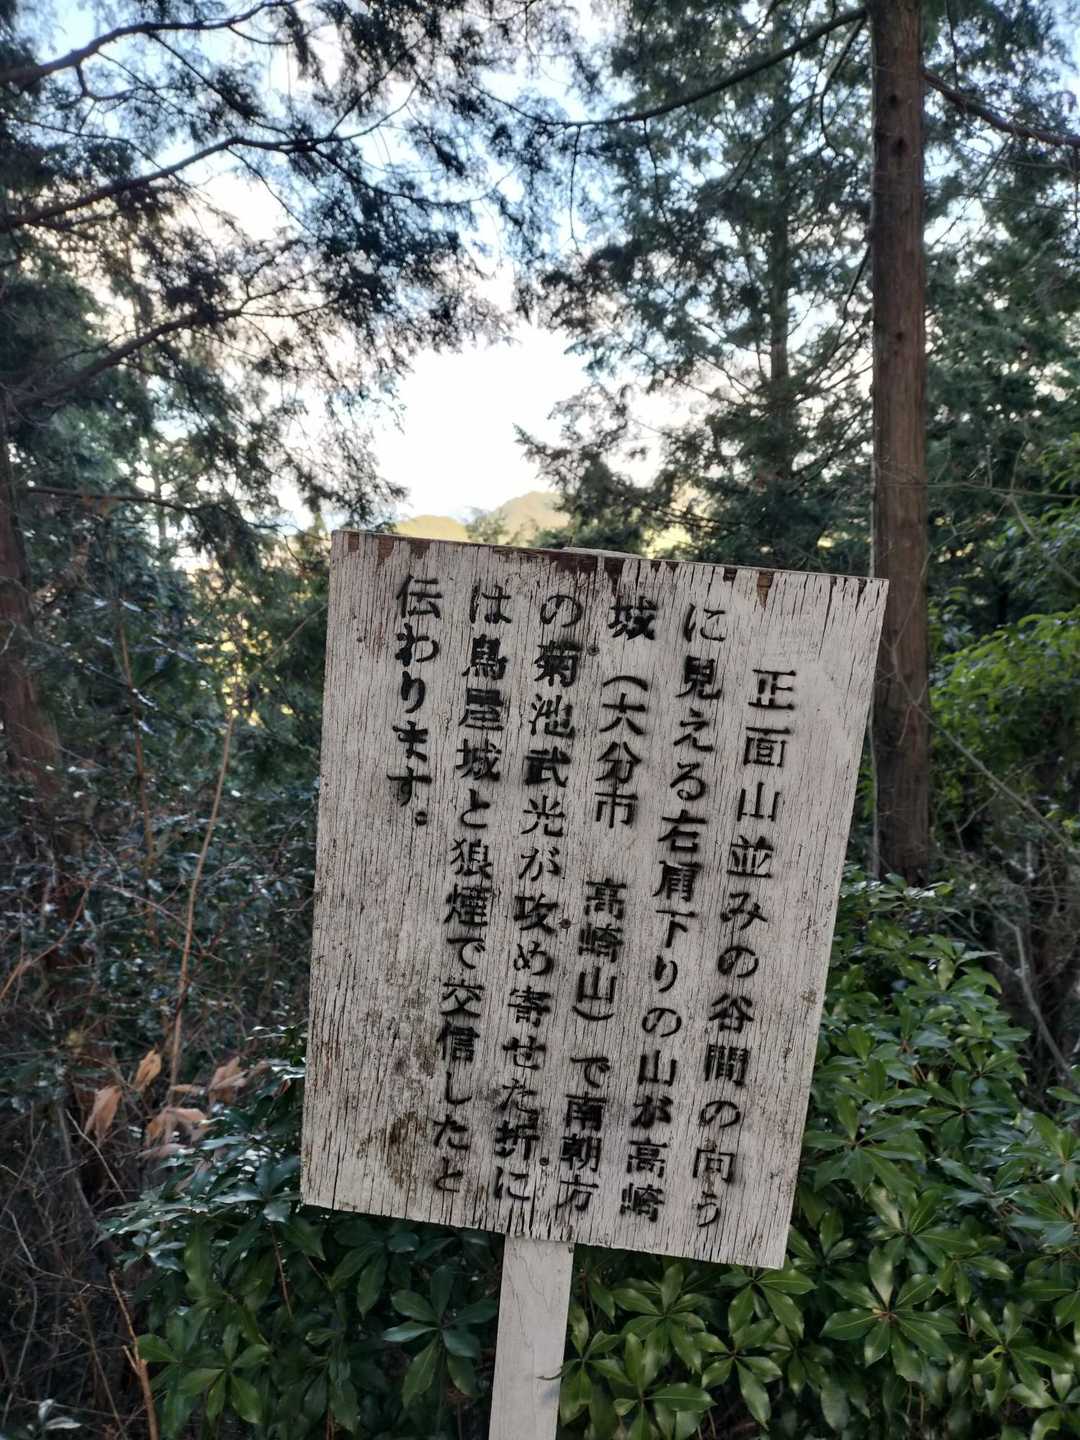 正面山並みの谷間の向う
に見える右肩下りの山が高崎
城（大分市　高崎山）で南朝方
の菊池武光が攻め寄せた折に
は鳥屋城と狼煙で交信したと
伝わります。